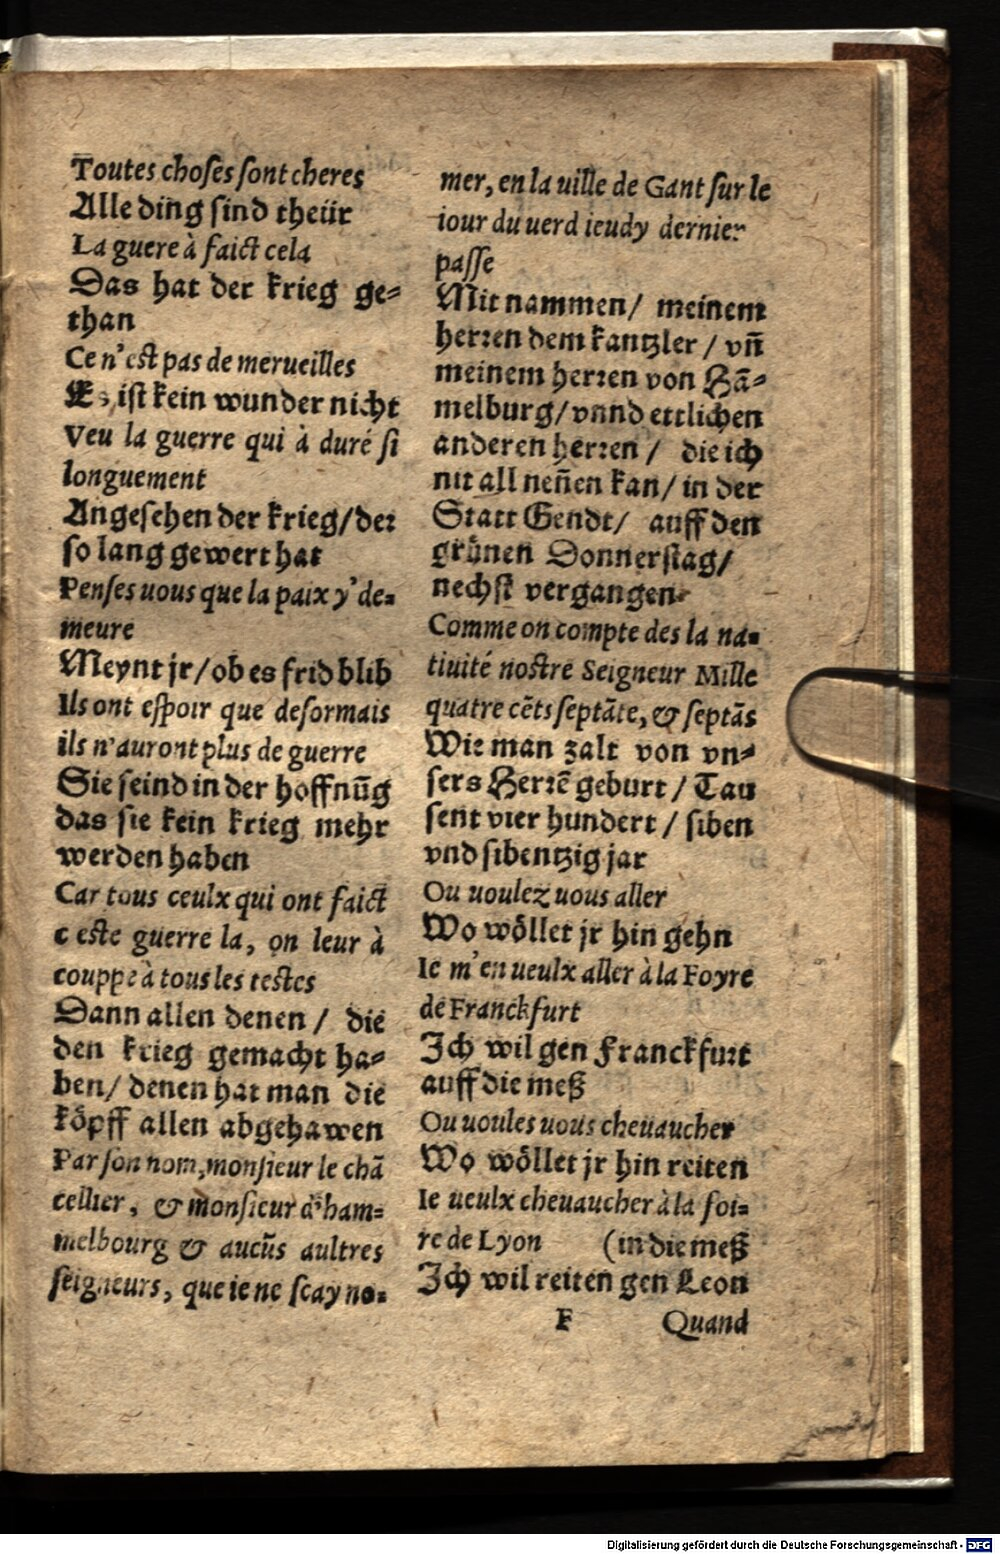 Toutes choses sont cheres
Alle ding sind theür
La guere à faict cela
Das hat der krieg ge-
than
Ce n'est pas de merueilles
Es ist kein wunder nicht
Veu la guerre qui à duré si
longuement
Angesehen der krieg/der
so lang gewert hat
Penses uous que la paix y' de-
meure
Meynt jr/ob es frid blib
Ils ont espoir que desormais
ils n'auront plus de guerre
Sie seind in der hoffnūg
das sie kein krieg mehr
werden haben
Car tous ceulx qui ont faict
c este guerre la, on leur à
couppe à tous les testes
Dann allen denen / die
den krieg gemacht ha-
ben/ denen hat man die
köpff allen abgehawen
Par son nom, monsieur le chā
cellier, & monsieur d'ham-
melbourg & aucūs aultres
seigneurs, que ie ne scay no-
mer, en la uille de Gant sur le
iour du uerd ieudy dernier
passe
Mit nammen/ meinem
herren dem kantzler / vñ
meinem herren von Hā-
melburg/vnnd ettlichen
anderen herren / die ich
nit all neñen kan/ in der
Statt Gendt/ auff den
grünen Donnerstag/
nechst vergangen
Comme on compte des la na-
tiuité nostre Seigneur Mille
quatre cēts septāte, & septās
Wie man zalt von vn-
sers Herrē geburt / Tau
sent vier hundert / siben
vnd sibentzig jar
Ou uoulez uous aller
Wo wöllet jr hin gehn
Ie m'en ueulx aller à la Foyre
de Franckfurt
Ich wil gen Franckfurt
auff die meß
Ou uoules uous cheuaucher
Wo wöllet jr hin reiten
Ie ueulx cheuaucher à la foi-
re de Lyon (in die meß
Ich wil reiten gen Leon
F Quand
Digitalisierung gefördert durch die Deutsche Forschungsgemeinschaft - DFG